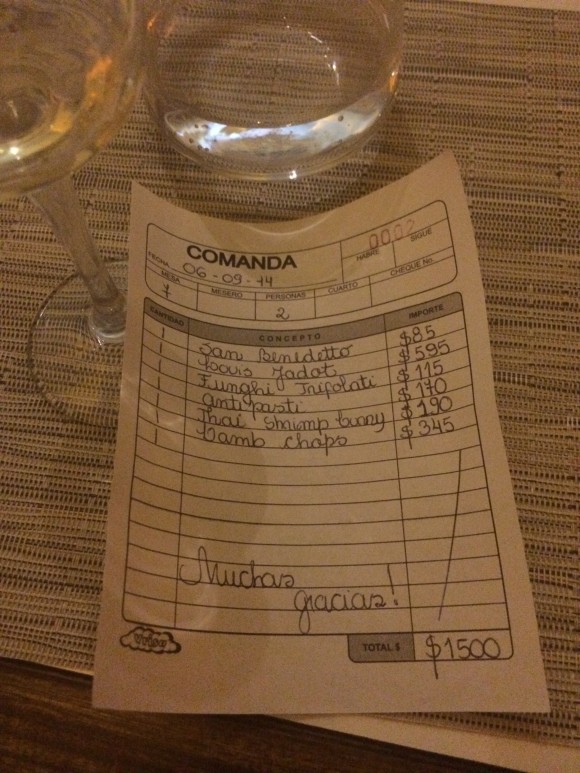 COMANDA
0002
HABRE SIGUE
FECHA 06-09-14
MESA MESERO PERSONAS CUARTO CHEQUE No.
7 2
CANTIDAD CONCEPTO IMPORTE
1 San Benedetto $85
1 Louis Jadot $595
1 Funghi Trifolati $115
1 Antipasti $170
1 Thai Shrimp Curry $190
1 Lamb chops $345
Muchas
gracias!
TOTAL $ $1500